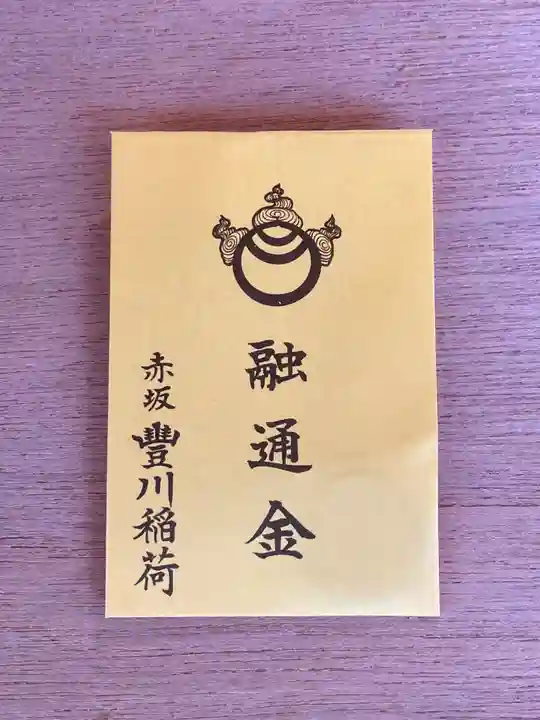 融通金
赤坂豐川稲荷